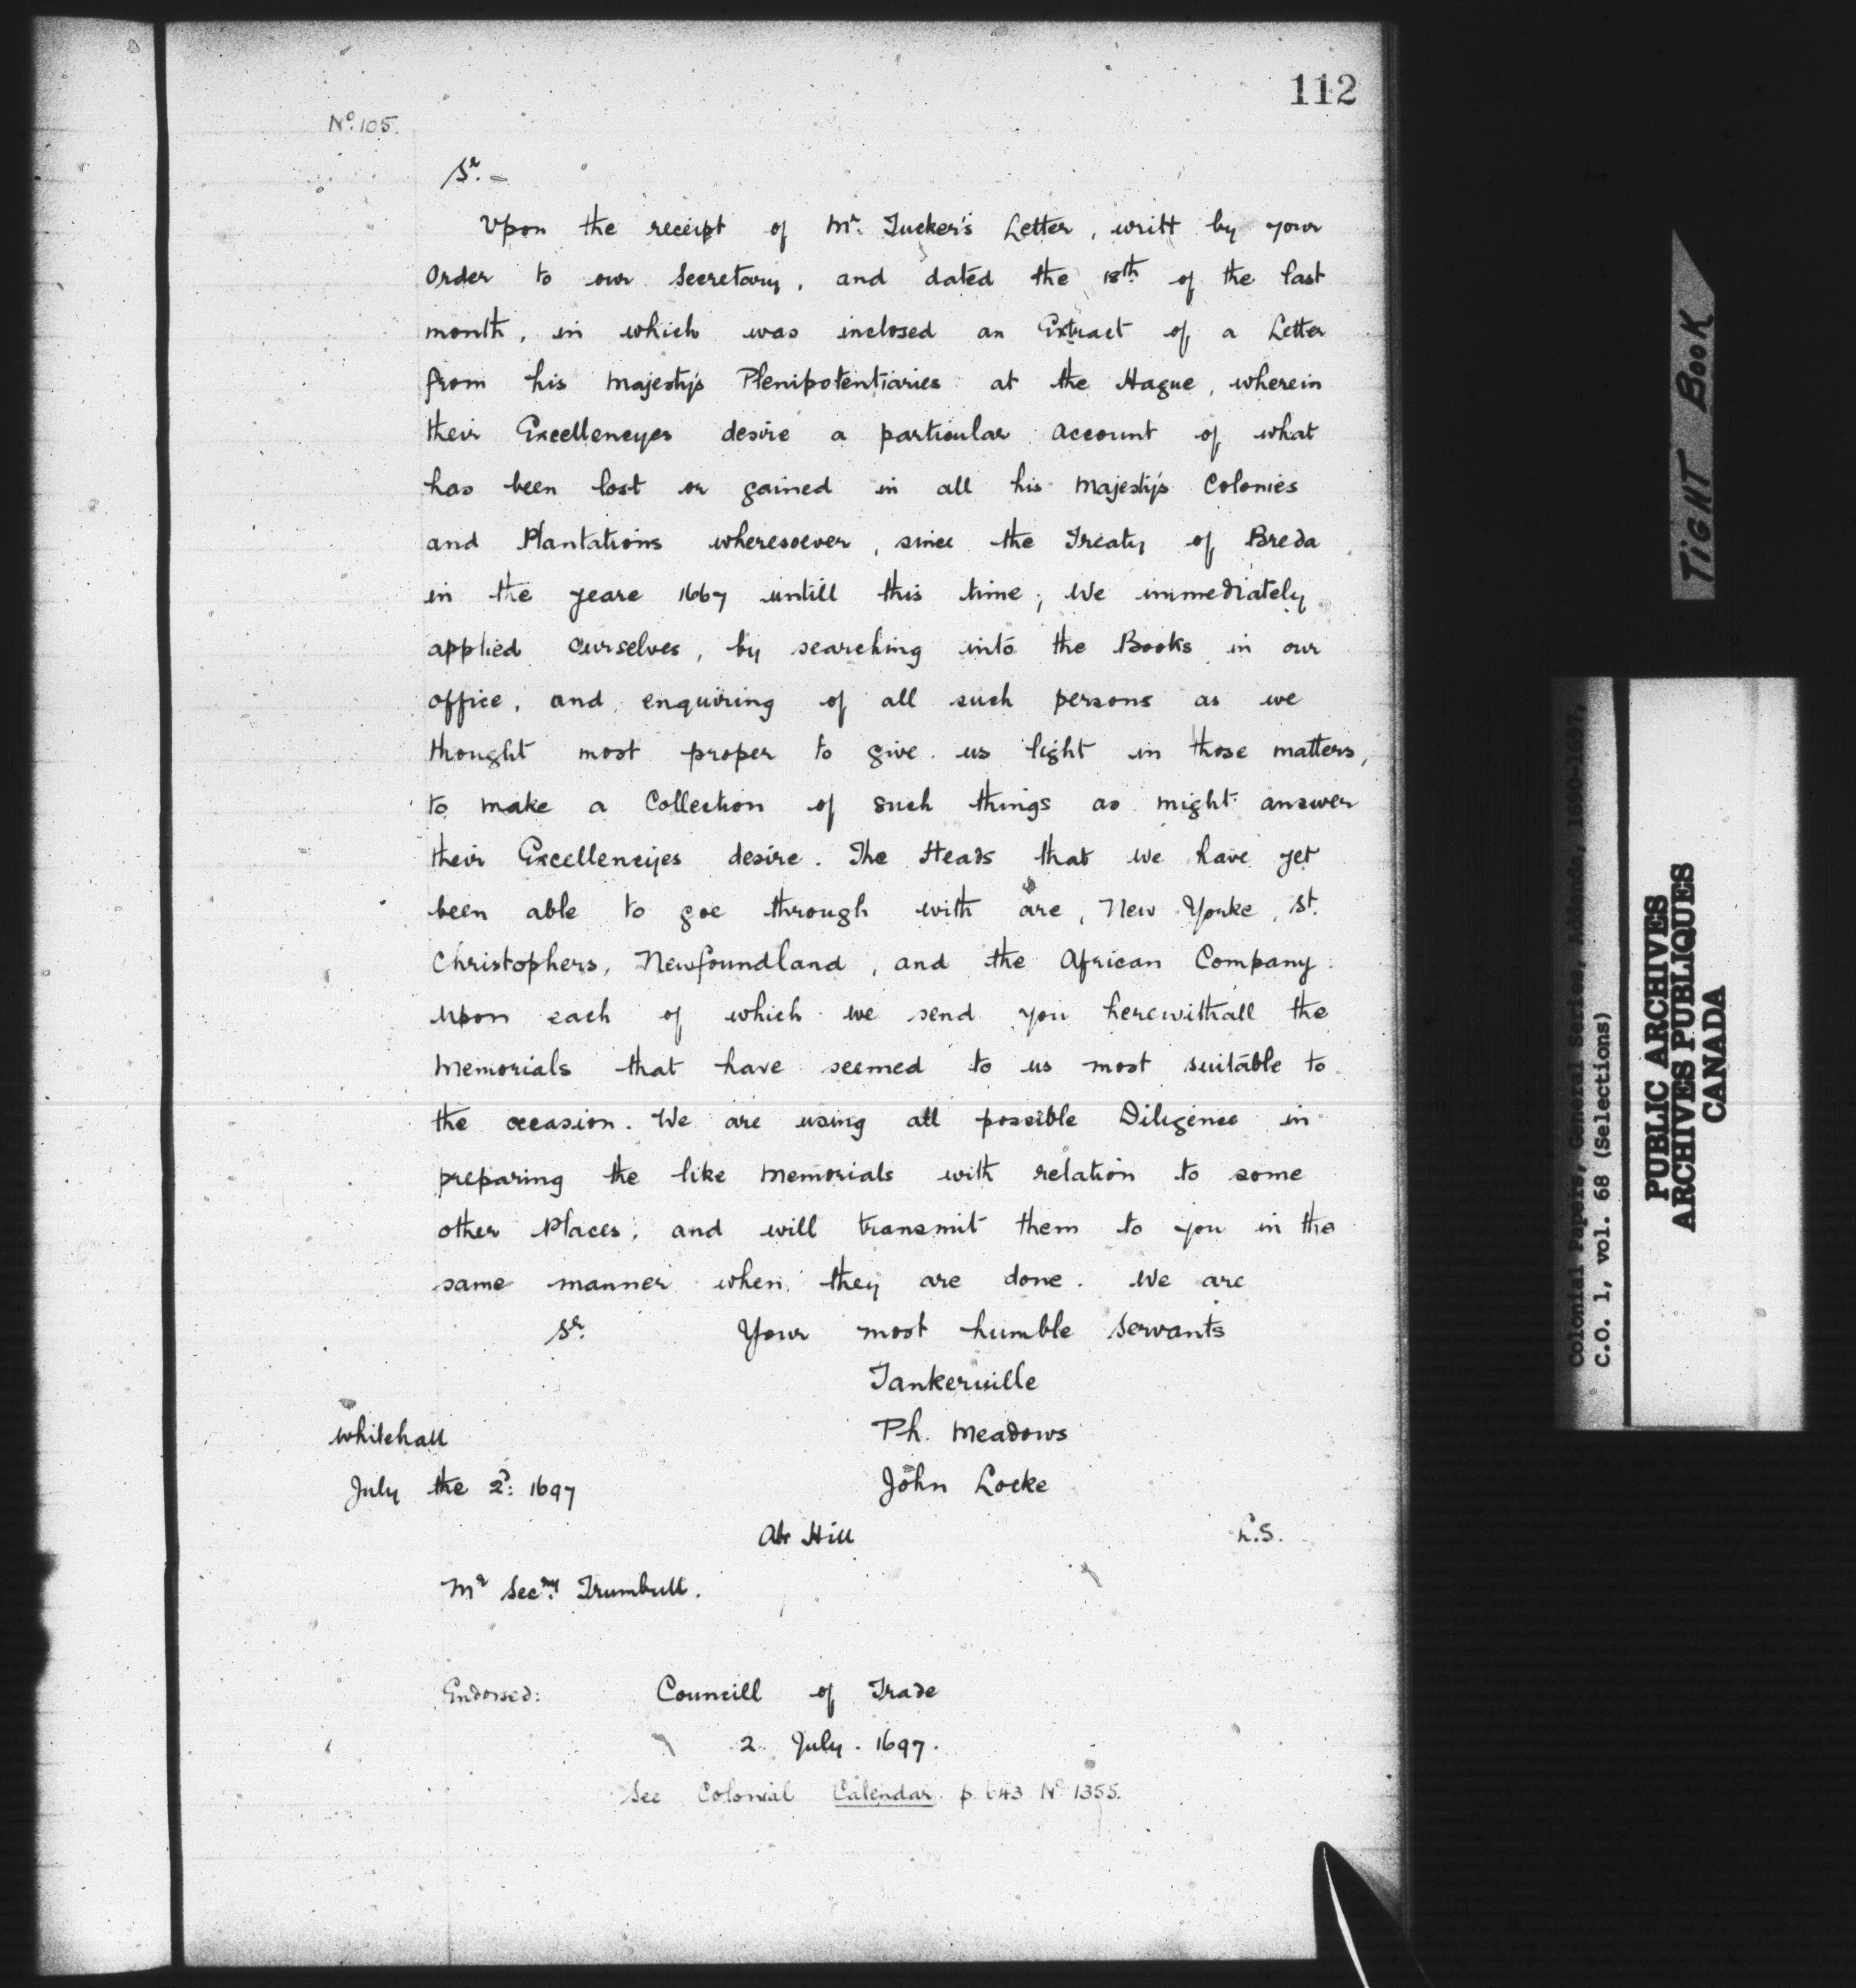 112
Nº. 105.
Sr. -
Upon the receipt of Mr. Tucker's Letter, writt by your
Order to our Secretary, and dated the 18th of the last
month, in which was inclosed an Extract of a Letter
from his Majesty's Plenipotentiaries at the Hague, wherein
their Excellencyes desire a particular Account of what
has been lost or gained in all his Majesty's Colonies
and Plantations wheresoever, since the Treaty of Breda
in the yeare 1667 untill this time; We immediately
applied ourselves, by searching into the Books in our
office, and enquiring of all such persons as we
thought most proper to give us light in those matters,
to make a Collection of such things as might answer
their Excellencyes desire. The Heads that we have yet
been able to goe through with are, New Yorke, St.
Christophers, Newfoundland, and the African Company:
upon each of which we send you herewithall the
Memorials that have seemed to us most suitable to
the occasion. We are using all possible Diligence in
preparing the like Memorials with relation to some
other Places; and will transmit them to you in the
same manner when they are done. We are
Sr. Your most humble Servants
Tankerville
Whitehall Ph. Meadows
July the 2d: 1697 John Locke
Abr Hill L.S.
Mr Secry. Trumbull.
Endorsed: Councill of Trade
2 July. 1697.
See Colonial Calendar p. 643 Nº 1355.
TIGHT BOOK
Colonial Papers, General Series, Addenda, 1690-1697,
C.O. 1, vol. 68 (Selections)
PUBLIC ARCHIVES
ARCHIVES PUBLIQUES
CANADA